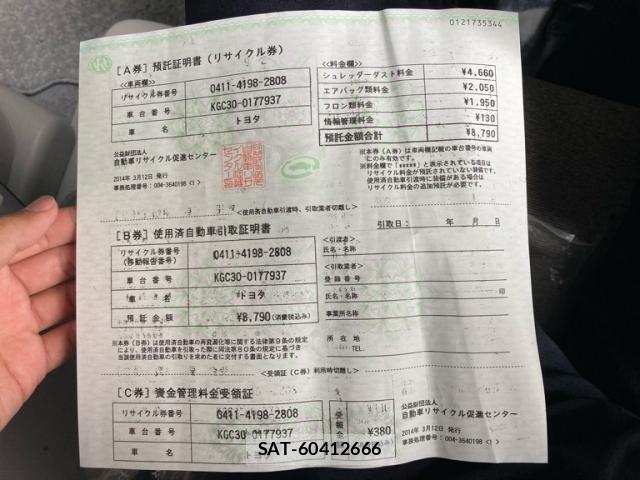 0121735344
［A券］預託証明書（リサイクル券）
<<車両欄>>
リサイクル券番号 0411-4198-2808
車台番号 KGC30-0177937
車名 トヨタ
<<料金欄>>
シュレッダーダスト料金 ¥4,660
エアバッグ類料金 ¥2,050
フロン類料金 ¥1,950
情報管理料金 ¥130
預託金額合計 ¥8,790
公益財団法人
自動車リサイクル促進センター
2014年 3月12日 発行
事務処理番号：004-3640198 <1>
※本券（A券）は車両欄記載の車台番号の車両
にのみ有効です。
※料金欄で「*****」と表示されている項目は
リサイクル料金が預託されていない装備です。
使用済自動車引渡時に装備がある場合は
リサイクル料金の追加預託が必要です。
<使用済自動車引渡時、引取業者切離し>
［B券］使用済自動車引取証明書
引取日： 年 月 日
リサイクル券番号
(移動報告番号) 0411-4198-2808
車台番号 KGC30-0177937
車名 トヨタ
預託金額 ¥8,790(消費税込み)
<引渡者>
氏名・名称
<引取業者>
登録番号
氏名・名称 印
事業所名称
所在地
TEL.
※本券（B券）は使用済自動車の再資源化等に関する法律第9条の規定
により、使用済自動車を引取った際に同法第80条の規定に基づき
当該使用済自動車の引取りを求めた者に交付する書面となります。
<受領証（C券）利用時切離し>
［C券］資金管理料金受領証
リサイクル券番号 0411-4198-2808
車台番号 KGC30-0177937
車名
受領金 ¥380
公益財団法人
自動車リサイクル促進センター
2014年 3月12日 発行
事務処理番号：004-3640198 <1>
SAT-60412666